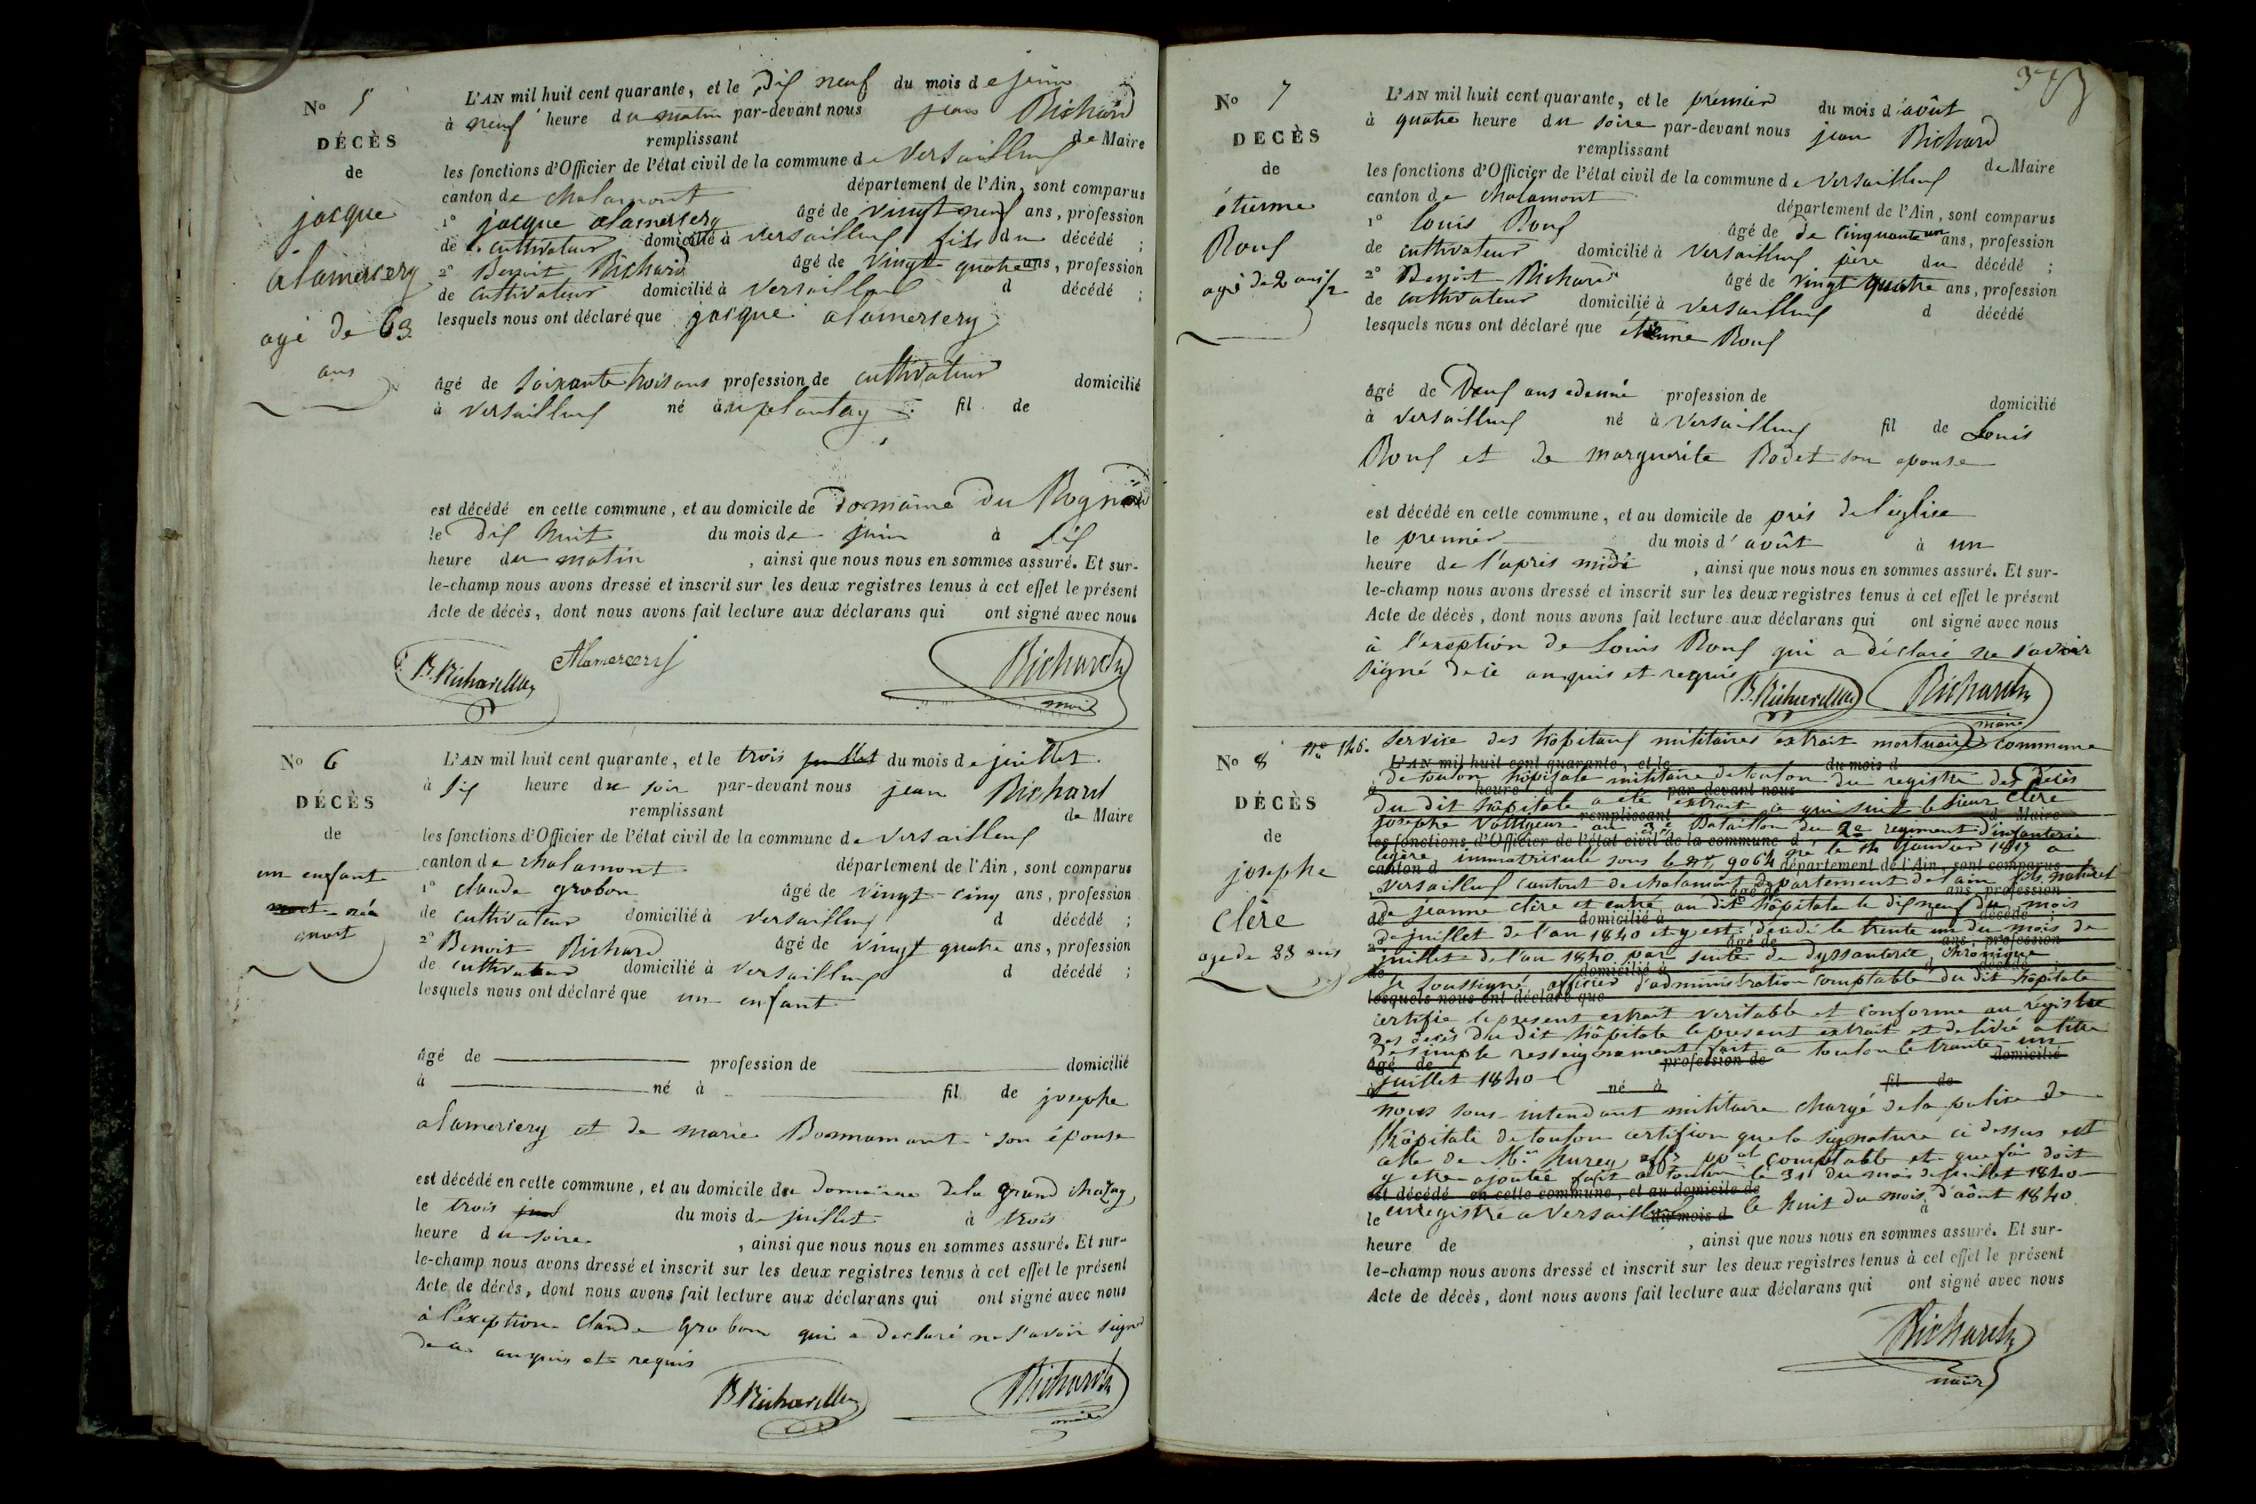 No 5
DÉCÈS
de
jacque
alamercery
agé de 63
ans
L'AN mil huit cent quarante, et le dix neuf du mois de juin
à neuf heure du matin par-devant nous jean Richard
remplissant de Maire
les fonctions d'Officier de l'état civil de la commune de Versailleux
canton de chalamont département de l'Ain, sont comparus
1° jacque alamersery âgé de vingt neuf ans, profession
de cultivateur domicilié à versailleux fils du décédé ;
2° Benoit Richard âgé de vingt quatre ans, profession
de cultivateur domicilié à versailleux d décédé ;
lesquels nous ont déclaré que jacque alamersery
âgé de soixante trois ans profession de cultivateur domicilié
à versailleux né au plantay fil de
est décédé en cette commune, et au domicile de domaine du
le dix huit du mois de juin à six
heure du matin , ainsi que nous nous en sommes assuré. Et sur-
le-champ nous avons dressé et inscrit sur les deux registres tenus à cet effet le présent
Acte de décès, dont nous avons fait lecture aux déclarans qui ont signé avec nous
B. Richard Alamercery Richard
maire
No 6
DÉCÈS
de
un enfant
mort née
mort
L'AN mil huit cent quarante, et le trois juillet du mois de juillet
à six heure du soir par-devant nous jean Richard
remplissant de Maire
les fonctions d'Officier de l'état civil de la commune de versailleux
canton de chalamont département de l'Ain, sont comparus
1° claude grobon âgé de vingt-cinq ans, profession
de cultivateur domicilié à versailleux d décédé ;
2° Benoit Richard âgé de vingt quatre ans, profession
de cultivateur domicilié à versailleux d décédé ;
lesquels nous ont déclaré que un enfant
âgé de profession de domicilié
à né à fil de josephe
alamersery et de marie Bonnamant son épouse
est décédé en cette commune, et au domicile du domaine de la grand
le trois du mois de juillet à trois
heure du soire , ainsi que nous nous en sommes assuré. Et sur-
le-champ nous avons dressé et inscrit sur les deux registres tenus à cet effet le présent
Acte de décès, dont nous avons fait lecture aux déclarans qui ont signé avec nous
à l'exeption claude grobon qui a declaré ne savoir signé
de ce anquis et requis
B Richard Richard
maire
No 7
DECÈS
de
étienne
Rouf
agé de 2 ans 1/2
L'AN mil huit cent quarante, et le premier du mois d'août
à quatre heure du soire par-devant nous jean Richard
remplissant de Maire
les fonctions d'Officier de l'état civil de la commune de versailleux
canton de chalamont département de l'Ain, sont comparus
1° Louis Rouf âgé de de cinquante un ans, profession
de cultivateur domicilié à Versailleux père du décédé ;
2° Benoit Richard âgé de vingt quatre ans, profession
de cultivateur domicilié à versailleux d décédé
lesquels nous ont déclaré que étienne Rouf
âgé de Deux ans edemi profession de domicilié
à versailleux né à versailleux fil de Louis
Rouf et de marguerite Rodet son epouse
est décédé en cette commune, et au domicile de près de l'église
le premier du mois d'août à un
heure de l'après midi , ainsi que nous nous en sommes assuré. Et sur-
le-champ nous avons dressé et inscrit sur les deux registres tenus à cet effet le présent
Acte de décès, dont nous avons fait lecture aux déclarans qui ont signé avec nous
à l'exeption de Louis Rouf qui a déclaré ne savoir
signé de ce anquis et requis
B. Richard Richard
maire
No 8
DÉCÈS
de
josephe
Clère
age de 23 ans
no 146. Service des hôpitaux militaires extrait mortuaire commune
L'AN mil huit cent quarante, et le du mois d
de toulon hôpitale militaire de toulon du registre des décès
à heure d par-devant nous
du dit hôpitale a été extrait ce qui suit le sieur clère
remplissant d Maire
josephe Voltigeur au 3e Bataillon du 2e regiment d'infanterie
les fonctions d'Officier de l'état civil de la commune d
legère immatriculé sous le no 9064 né le 14 janvier 1817 a
canton d département de l'Ain, sont comparus
versailleux cantont de chalamont département de l'ain fils naturel
âgé de ans, profession
de jeanne clère et entré au dit hôpitale le dix neuf du mois
de domicilié à d décédé ;
de juillet de l'an 1840 et y est décédé le trente un du mois de
2° âgé de ans, profession
juillet de l'an 1840 par suite de dyssanterie chronique
de domicilié à d décédé
je soussigné officier d'administration comptable du dit hôpitale
lesquels nous ont déclaré que
certifie le present extrait veritable et conforme au registre
des décès du dit hôpitale le present extrait est delivré a titre
de simple resseignement fait a toulon le trante un
âgé de profession de domicilié
juillet 1840
à né à fil de
nous sous-intendant militaire chargé de la police de
l'hôpitale de toulon certifion que la signature ci dessus est
celle de Mr. comptable et que foi doit
y etre ajoutée fait a toulon le 31 du mois de juillet 1840
est décédé en cette commune, et au domicile de
enregistré a Versailleux le huit du mois d'août 1840
le du mois d à
heure de , ainsi que nous nous en sommes assuré. Et sur-
le-champ nous avons dressé et inscrit sur les deux registres tenus à cet effet le présent
Acte de décès, dont nous avons fait lecture aux déclarans qui ont signé avec nous
Richard
maire